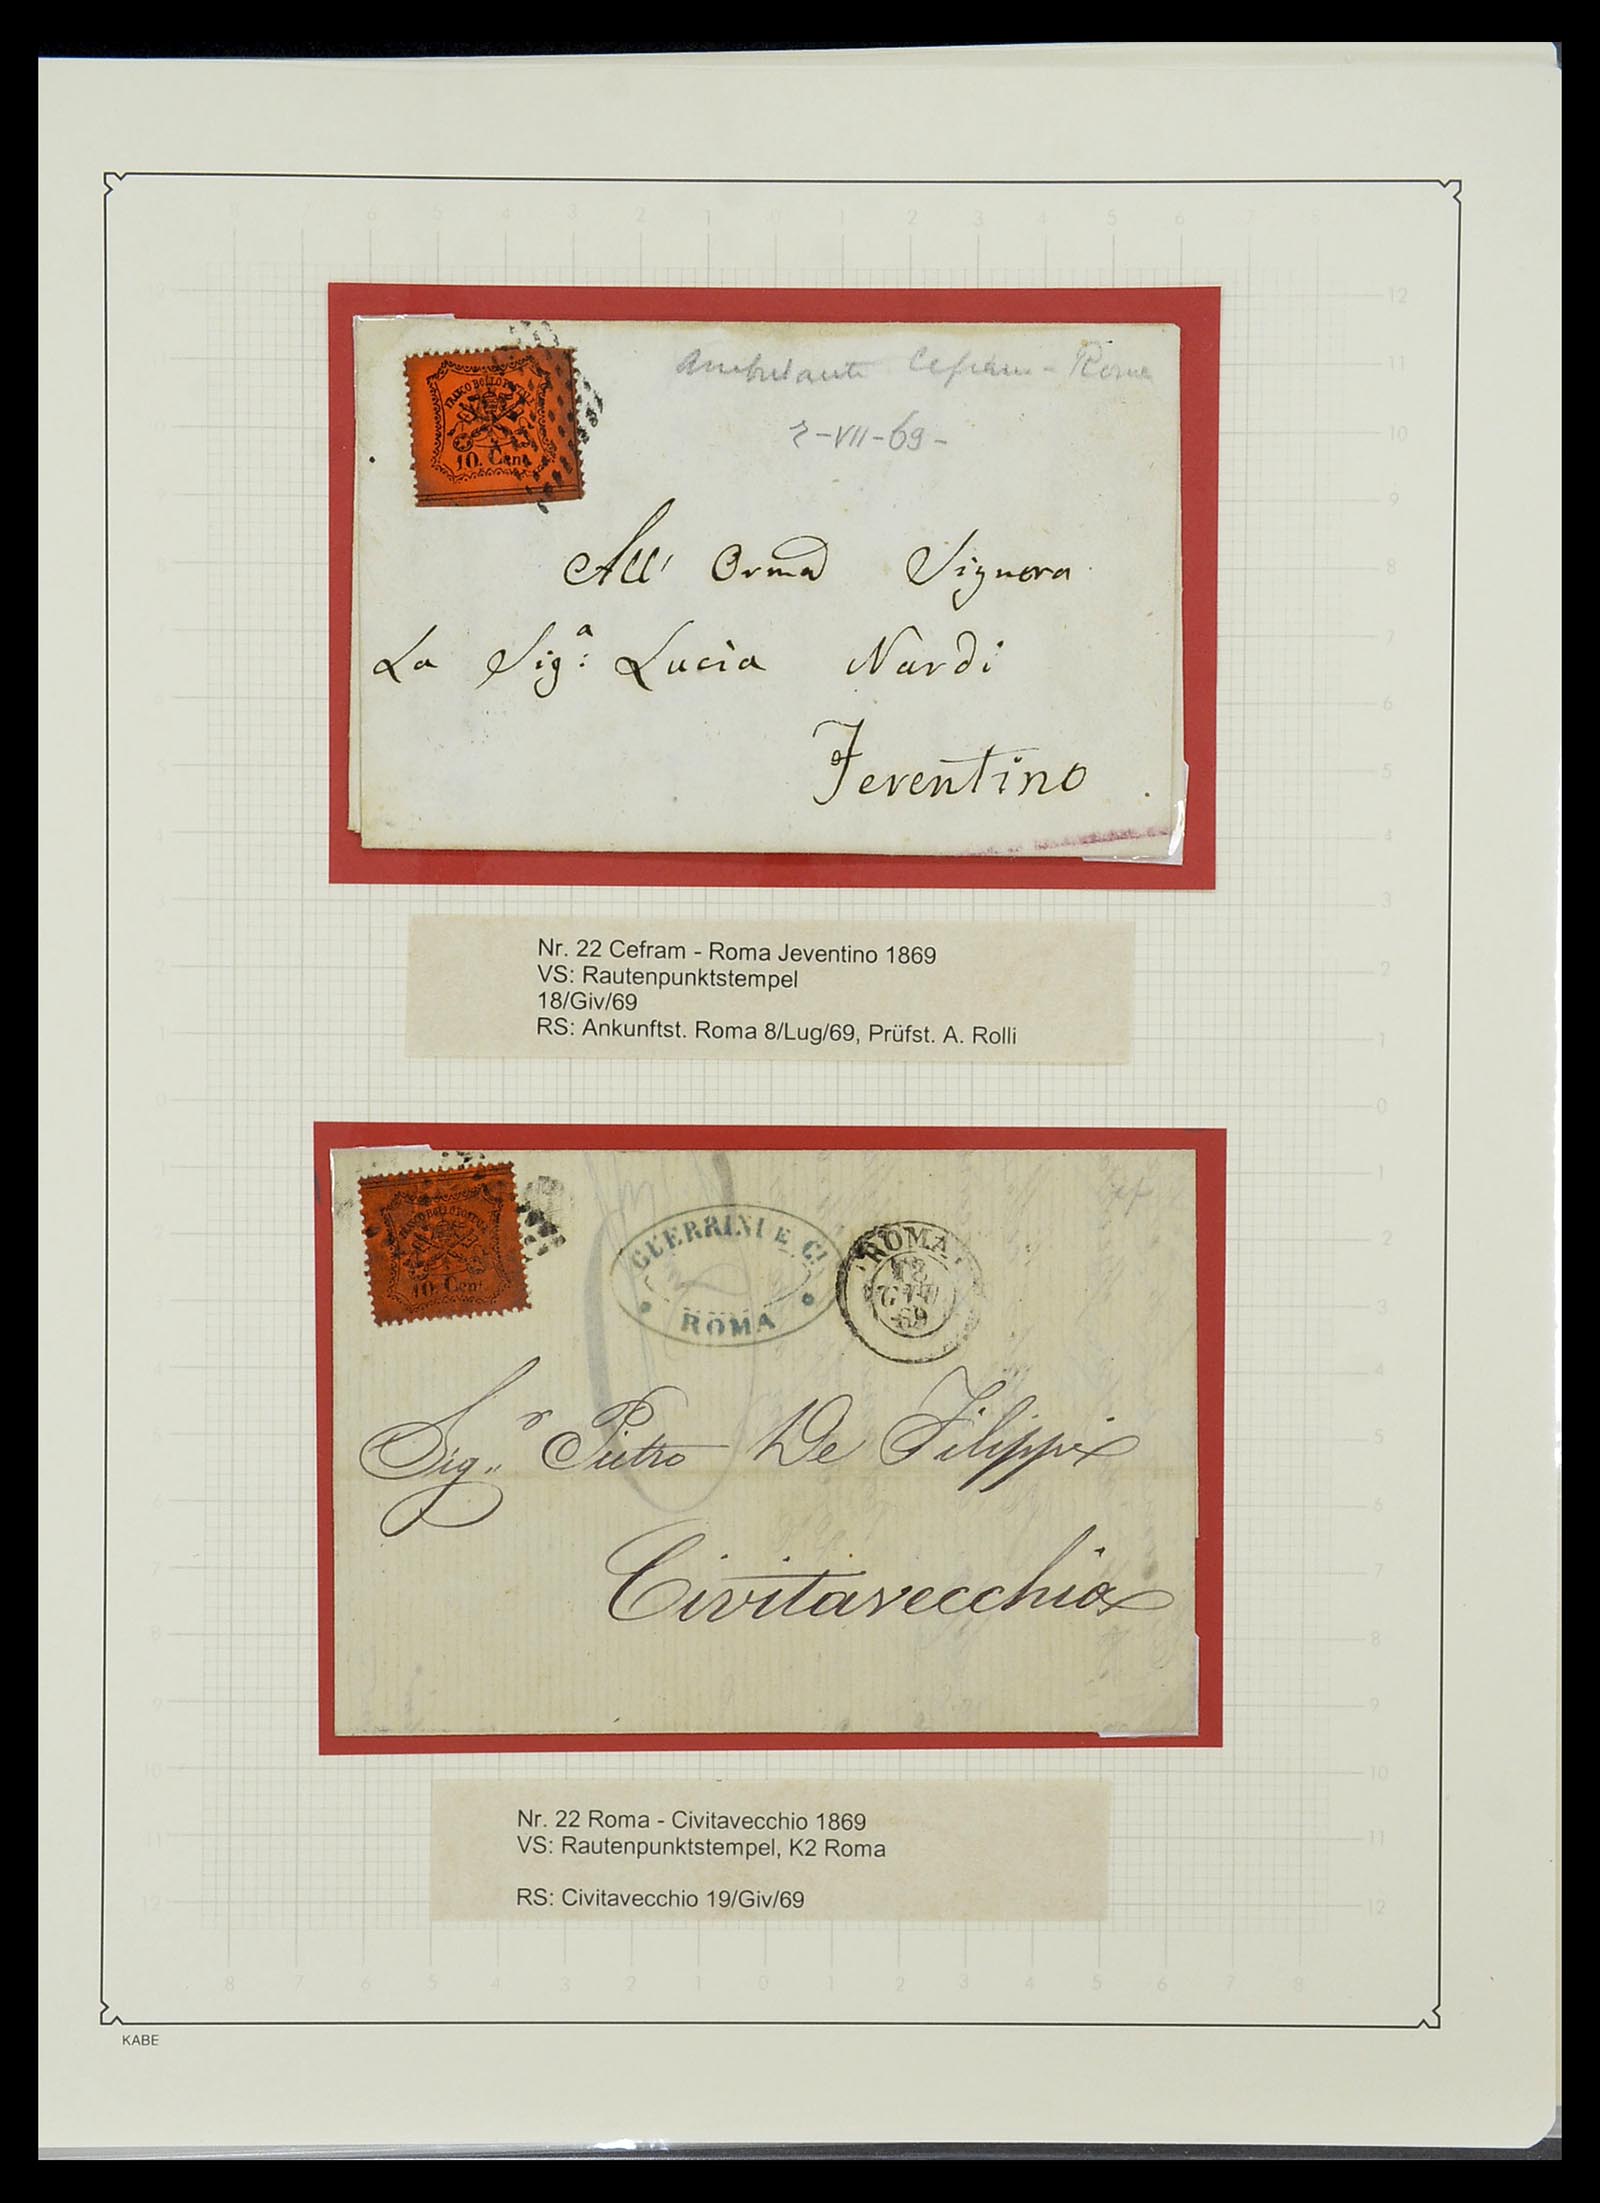 Ambulante Cefram - Roma
2-VII-69-
FRANCO BOLLO POSTALE
10. Cent
All' Ornma Signora
La Sig.a Lucia Nardi
Ferentino
Nr. 22 Cefram - Roma Jeventino 1869
VS: Rautenpunktstempel
18/Giv/69
RS: Ankunftst. Roma 8/Lug/69, Prüfst. A. Rolli
FRANCO BOLLO POSTALE
10. Cent.
GUERRINI E C.
ROMA
ROMA
18
GIU
69
Sig.r Pietro De Filippi
Civitavecchia
Nr. 22 Roma - Civitavecchio 1869
VS: Rautenpunktstempel, K2 Roma
RS: Civitavecchio 19/Giv/69
KABE